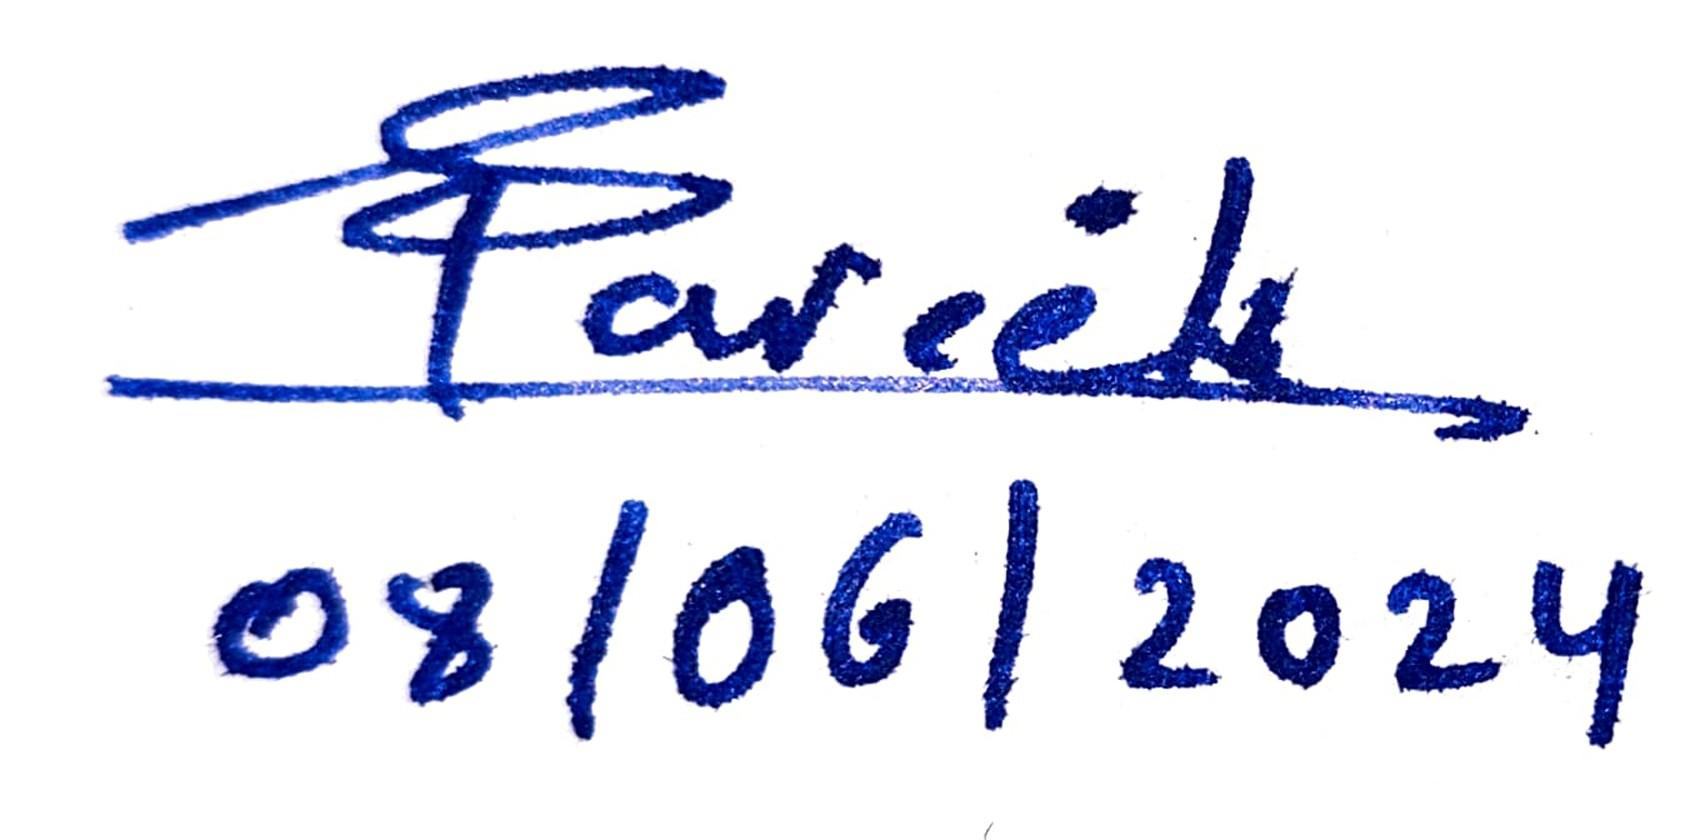 Pareek
08/06/2024